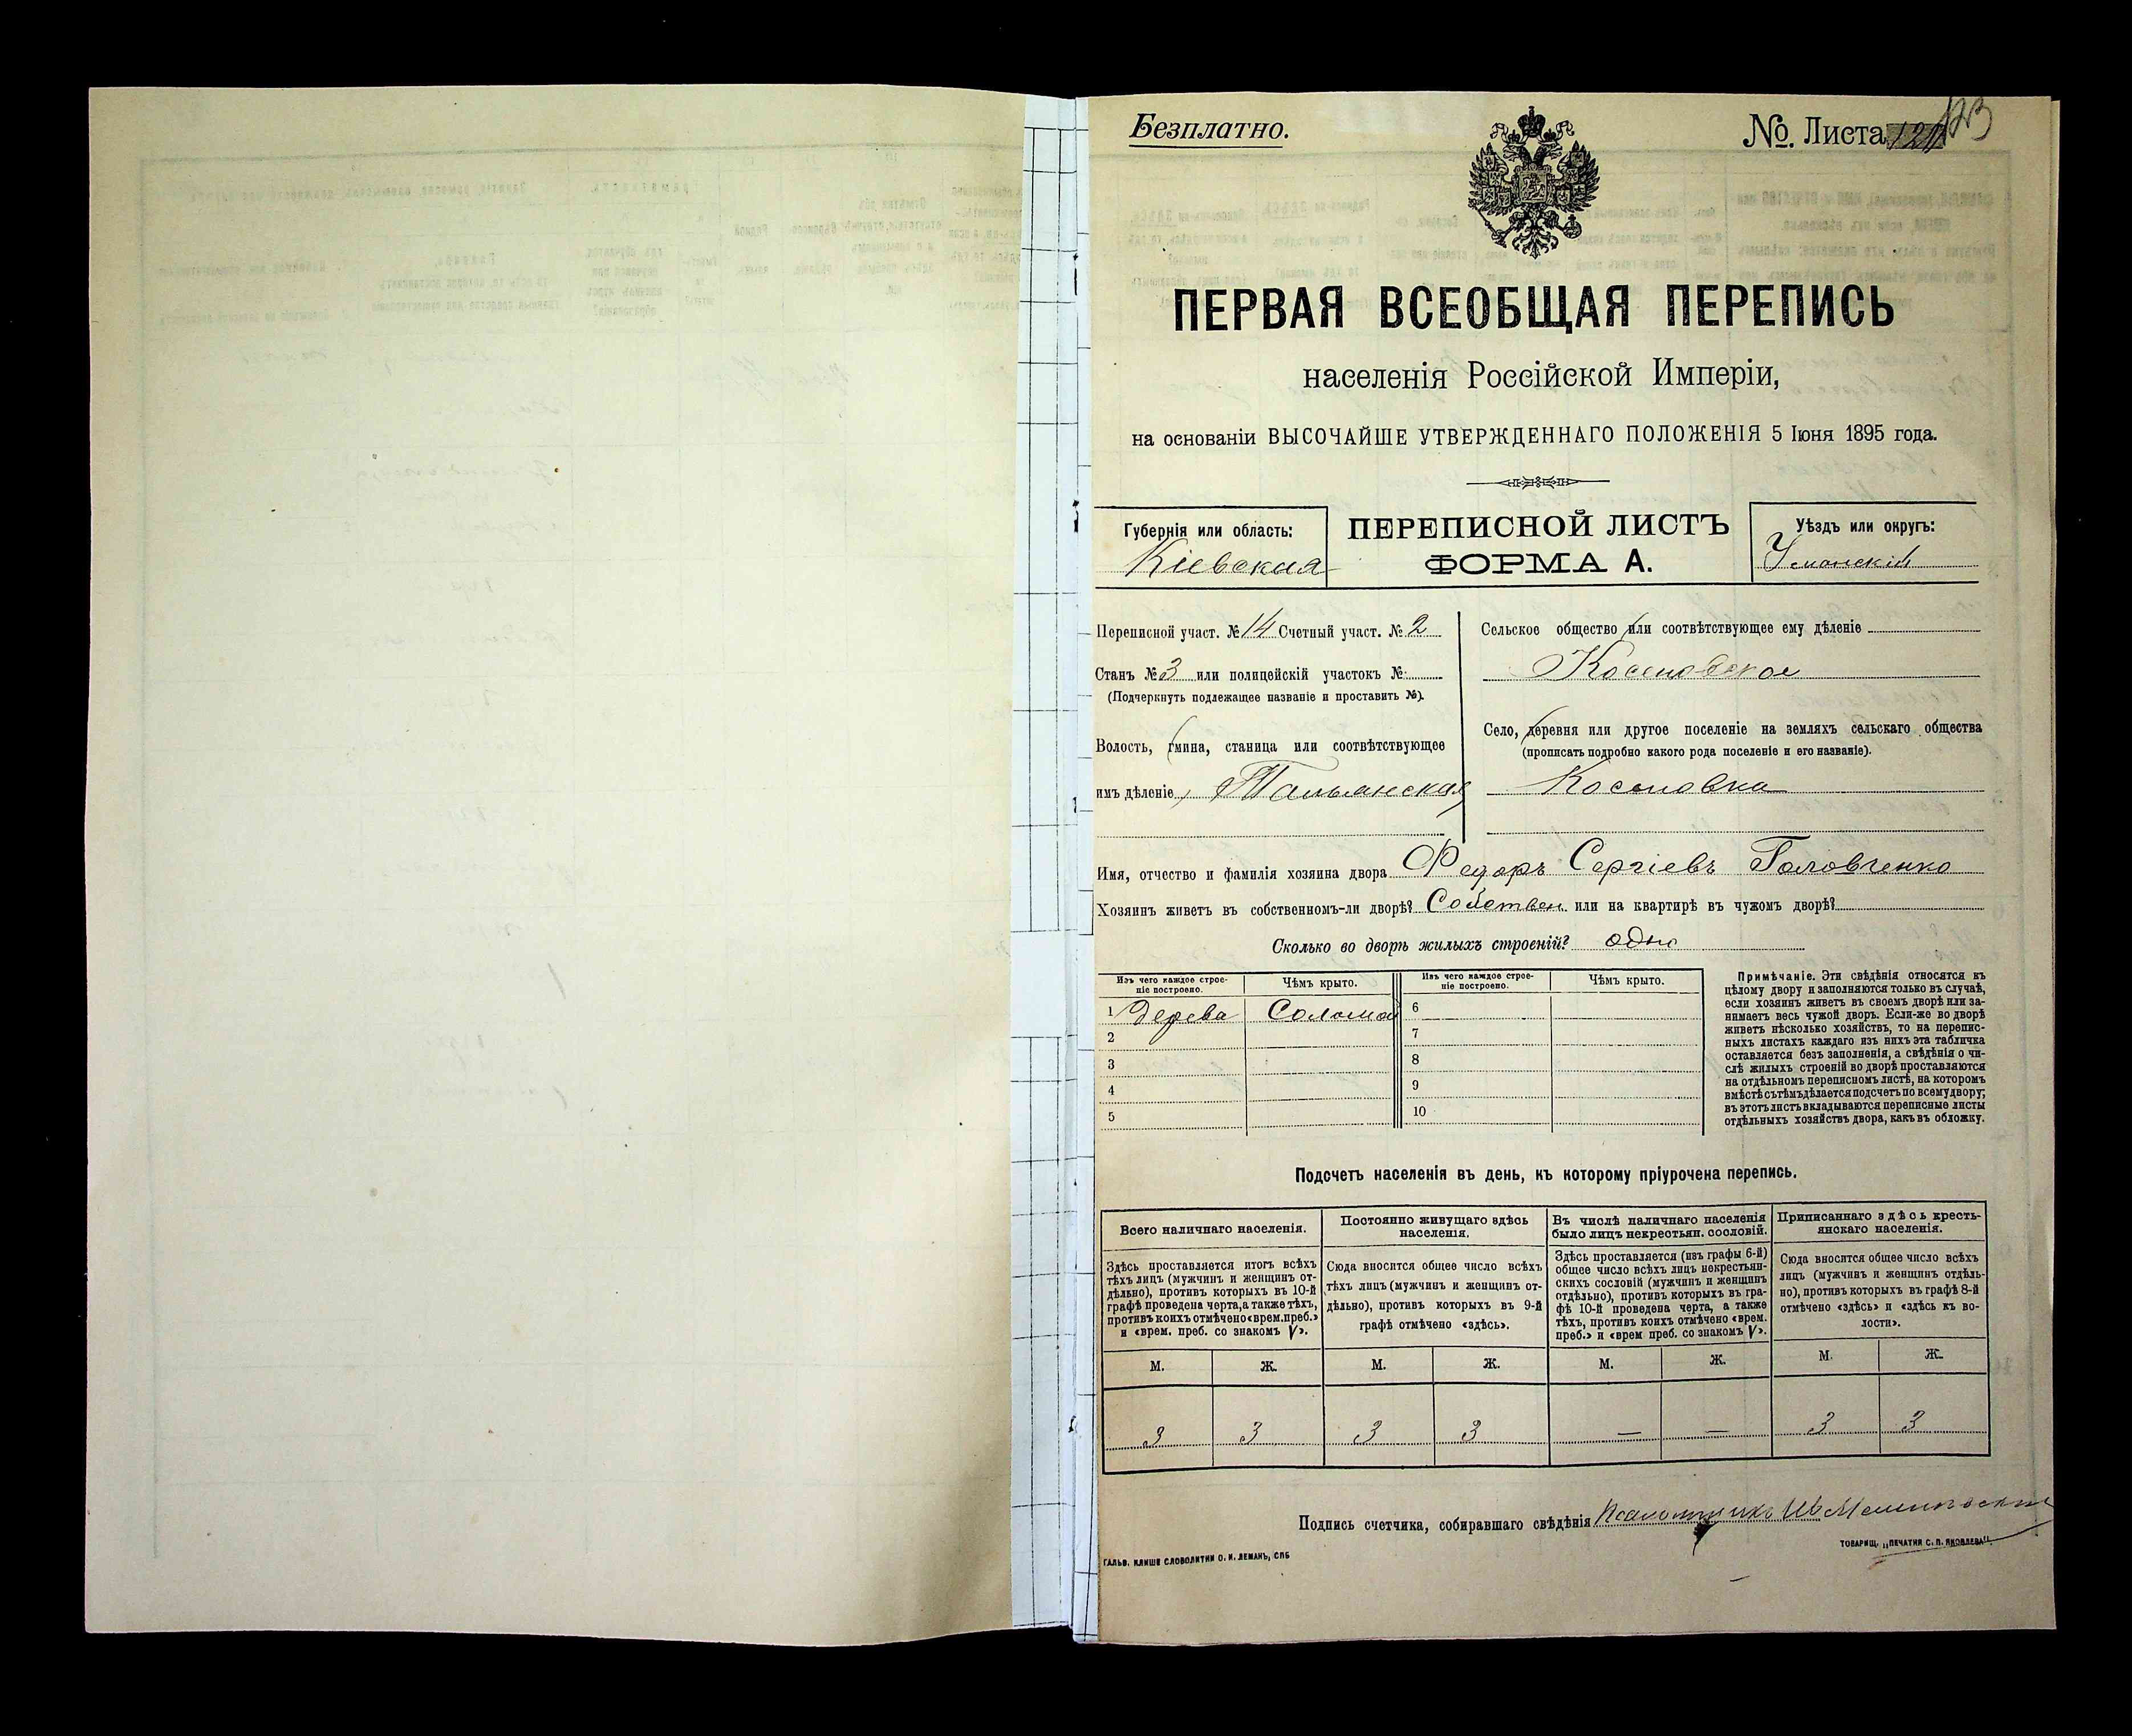 Безплатно.
№. Листа 123
ПЕРВАЯ ВСЕОБЩАЯ ПЕРЕПИСЬ
населенія Россійской Имперіи,
на основаніи ВЫСОЧАЙШЕ УТВЕРЖДЕННАГО ПОЛОЖЕНІЯ 5 Іюня 1895 года.
Губернія или область:
Кіевская
ПЕРЕПИСНОЙ ЛИСТЪ
ФОРМА А.
Уѣздъ или округъ:
Уманскій
Переписной участ. № 14 Счетный участ. № 2
Станъ № 3 или полицейскій участокъ №
(Подчеркнуть подлежащее названіе и проставить №).
Волость, гмина, станица или соотвѣтствующее
имъ дѣленіе Тальянская
Сельское общество или соотвѣтствующее ему дѣленіе
Косеновское
Село, деревня или другое поселеніе на земляхъ сельскаго общества
(прописать подробно какого рода поселеніе и его названіе).
Косеновка
Имя, отчество и фамилія хозяина двора Федоръ Сергіевъ Головченко
Хозяинъ живетъ въ собственномъ-ли дворѣ? Собствен. или на квартирѣ въ чужомъ дворѣ?
Сколько во дворѣ жилыхъ строеній? одно
Изъ чего каждое строе-
ніе построено.
Чѣмъ крыто.
Изъ чего каждое строе-
ніе построено.
Чѣмъ крыто.
1 Дерева Соломой 6
2 7
3 8
4 9
5 10
Примѣчаніе. Эти свѣдѣнія относятся къ
цѣлому двору и заполняются только въ случаѣ,
если хозяинъ живетъ въ своемъ дворѣ или за-
нимаетъ весь чужой дворъ. Если-же во дворѣ
живетъ нѣсколько хозяйствъ, то на перепис-
ныхъ листахъ каждаго изъ нихъ эта табличка
оставляется безъ заполненія, а свѣдѣнія о чи-
слѣ жилыхъ строеній во дворѣ проставляются
на отдѣльномъ переписномъ листѣ, на которомъ
вмѣстѣ съ тѣмъ дѣлается подсчетъ по всему двору;
въ этотъ листъ вкладываются переписные листы
отдѣльныхъ хозяйствъ двора, какъ въ обложку.
Подсчетъ населенія въ день, къ которому пріурочена перепись.
Всего наличнаго населенія.
Здѣсь проставляется итогъ всѣхъ
тѣхъ лицъ (мужчинъ и женщинъ от-
дѣльно), противъ которыхъ въ 10-й
графѣ проведена черта, а также тѣхъ,
противъ коихъ отмѣчено «врем. преб.»
и «врем. преб. со знакомъ V».
Постоянно живущаго здѣсь
населенія.
Сюда вносится общее число всѣхъ
тѣхъ лицъ (мужчинъ и женщинъ от-
дѣльно), противъ которыхъ въ 9-й
графѣ отмѣчено «здѣсь».
Въ числѣ наличнаго населенія
было лицъ некрестьян. сословій.
Здѣсь проставляется (изъ графы 6-й)
общее число всѣхъ лицъ некрестьян-
скихъ сословій (мужчинъ и женщинъ
отдѣльно), противъ которыхъ въ гра-
фѣ 10-й проведена черта, а также
тѣхъ, противъ коихъ отмѣчено «врем.
преб.» и «врем преб. со знакомъ V».
Приписаннаго здѣсь кресть-
янскаго населенія.
Сюда вносится общее число всѣхъ
лицъ (мужчинъ и женщинъ отдѣль-
но), противъ которыхъ въ графѣ 8-й
отмѣчено «здѣсь» и «здѣсь къ во-
лости».
М. Ж. М. Ж. М. Ж. М. Ж.
3 3 3 3 — — 3 3
Подпись счетчика, собиравшаго свѣдѣнія Псаломщикъ
ГАЛЬВ. КЛИШЕ СЛОВОЛИТНИ О. И. ЛЕМАНЪ, СПБ
ТОВАРИЩ. „ПЕЧАТНЯ С. П. ЯКОВЛЕВА“.